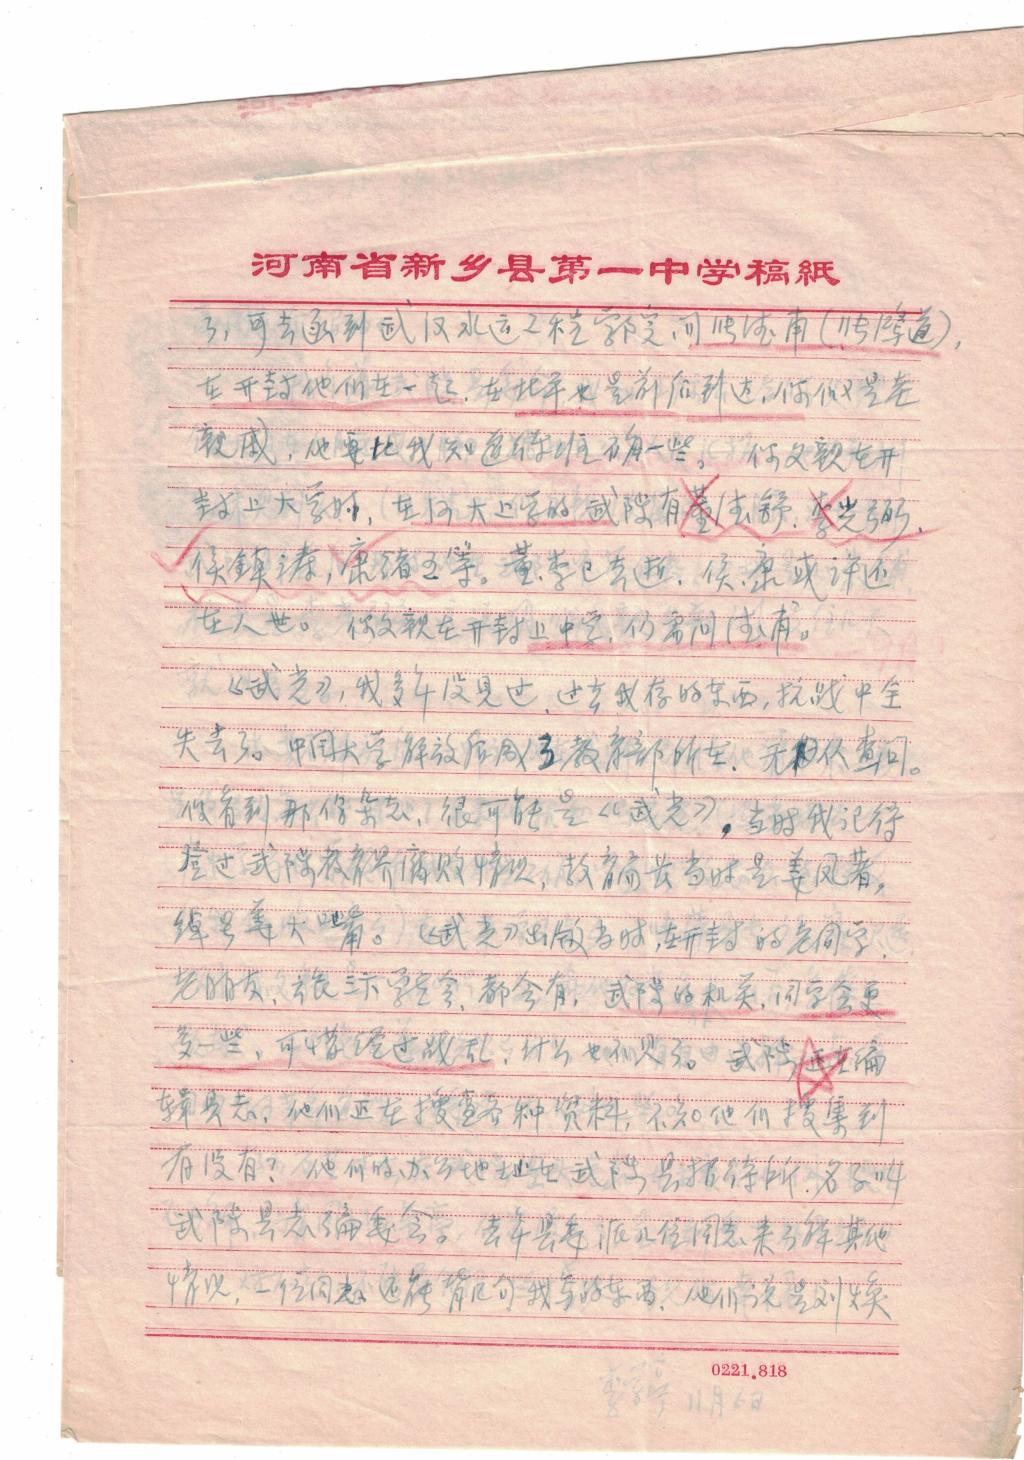 河南省新乡县第一中学稿紙
了，可去函到武汉水运工程学院问张法甫（张肇道），
在开封他们在一起，在北平也是前后到达，你们又是老
亲戚，他要比我知道得准确一些。你父亲在开
封上大学时，在河大上学的武陟有董法舒、李光弼、
侯镇涛，康绪玉等。董、李已去逝，侯、康或许还
在人世。你父亲在开封上中学，仍需问法甫。
《武光》，我多年没见过，过去我存的东西，抗战中全
失去了。中国大学解放后成了教育部所在，无从查问。
你看到那份杂志，很可能是《武光》，当时我记得
登过武陟教育界腐败情况，教育局长当时是姜凤著，
绰号姜大嘴。《武光》出版当时，在开封的老同学、
老朋友，旅汴学生会，都会有，武陟的机关，同学会更
多一些，可惜经过战乱，什么也不见了。武陟正在编
辑县志，他们正在搜查各种资料，不知他们搜集到
有没有？他们的办公地址在武陟县招待所，名字叫
武陟县志编委会，去年县委派几位同志来了解其他
情况，一位同志还能背几句我写的东西，他们说是刘焕
0221.818
11月6日